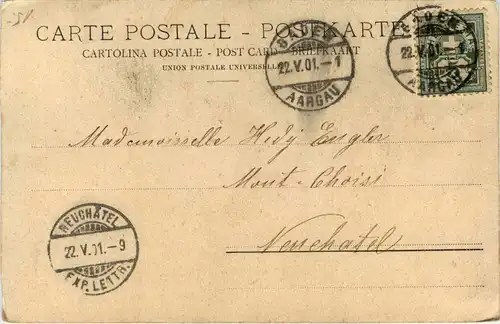 CARTE POSTALE - POSTKARTE
CARTOLINA POSTALE - POST CARD - BRIEFKAART
UNION POSTALE UNIVERSELLE
BADEN
22.V.01.-1
AARGAU
BADEN
22.V.01.-1
AARGAU
Mademoiselle Hedy Engler
Mont-Choisi
Neuchatel
NEUCHÂTEL
22.V.01.-9
EXP. LETTR.